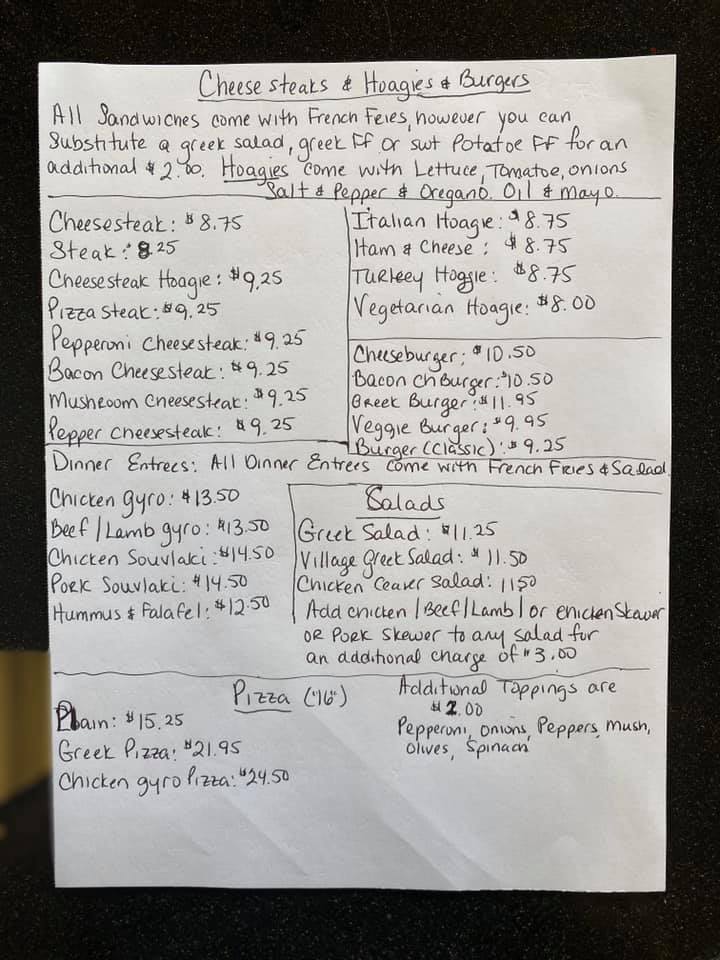 Cheese steaks & Hoagies & Burgers
All Sandwiches come with French Feies, however you can
Substitute a greek salad, greek FF or swt Potatoe FF for an
additional $2.00. Hoagies come with Lettuce, Tomatoe, onions
Salt & Pepper & Oregano. Oil & mayo.
Cheesesteak: $8.75
Steak: 8.25
Cheesesteak Hoagie: $9.25
Pizza steak: $9.25
Pepperoni Cheesesteak: $9.25
Bacon Cheesesteak: $9.25
Mushroom Cheesesteak: $9.25
Pepper Cheesesteak: $9.25
Italian Hoagie: $8.75
Ham & Cheese: $8.75
Turkey Hoagie: $8.75
Vegetarian Hoagie: $8.00
Cheeseburger: $10.50
Bacon Ch Burger: $10.50
Greek Burger: $11.95
Veggie Burger: $9.95
Burger (Classic): $9.25
Dinner Entrees: All Dinner Entrees come with French Fries & Salad
Chicken gyro: $13.50
Beef/Lamb gyro: $13.50
Chicken Souvlaki: $14.50
Pork Souvlaki: $14.50
Hummus & Falafel: $12.50
Salads
Greek Salad: $11.25
Village Greek Salad: $11.50
Chicken Ceaser Salad: 1150
Add chicken/Beef/Lamb/or chicken Skewer
OR Pork skewer to any salad for
an additional charge of $3.00
Pizza ("16")
Plain: $15.25
Greek Pizza: $21.95
Chicken gyro Pizza: $24.50
Additional Toppings are
$2.00
Pepperoni, onions, Peppers, mush,
olives, Spinach